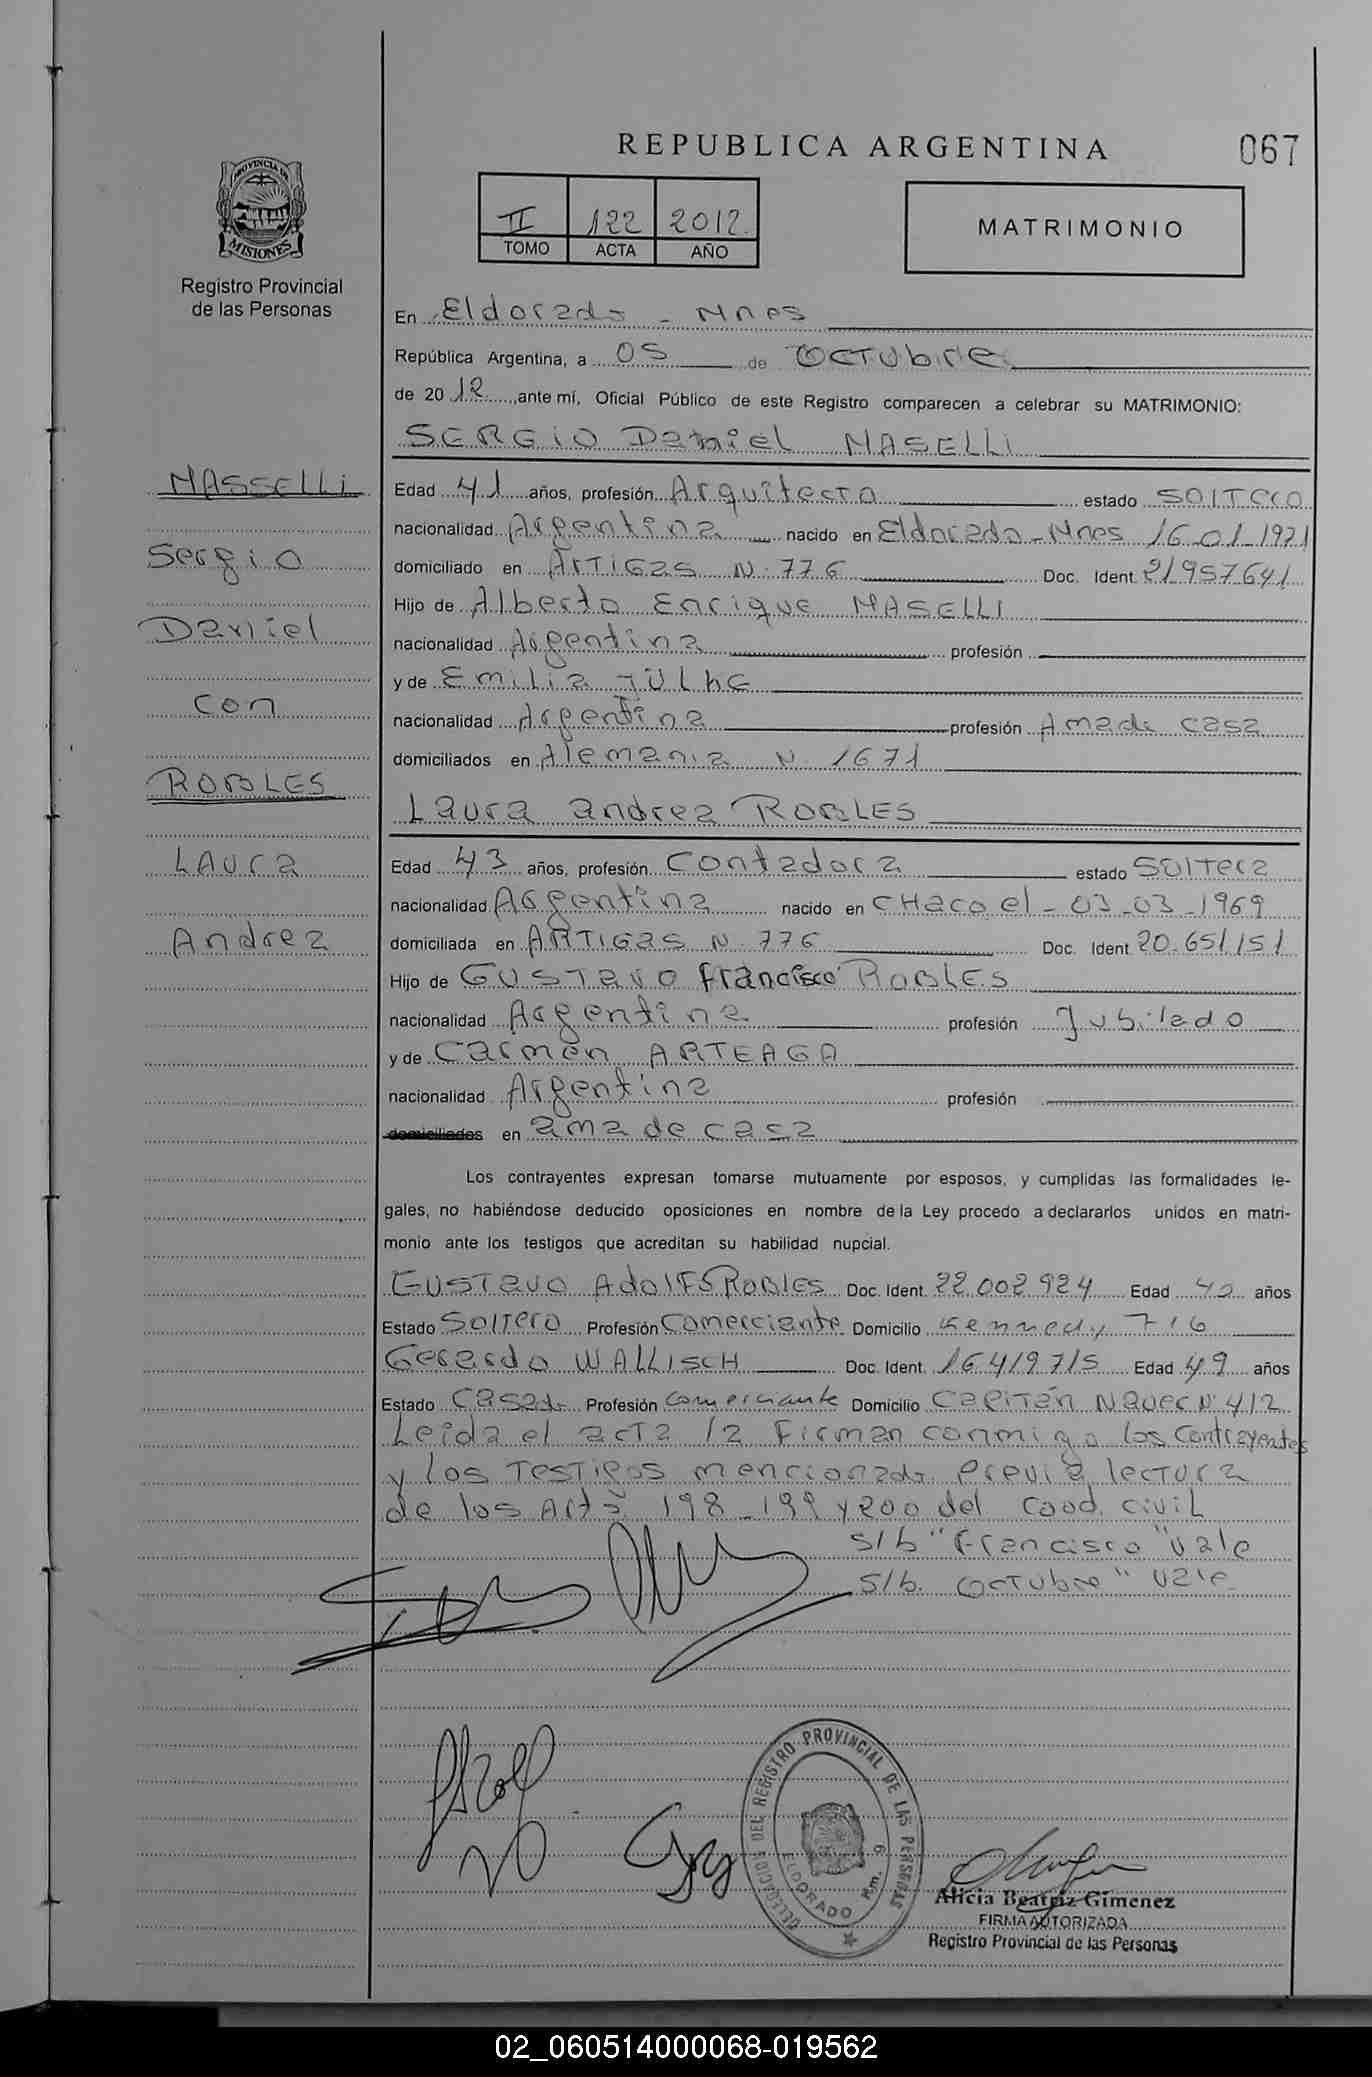 REPUBLICA ARGENTINA
067
PROVINCIA DE
MISIONES
Registro Provincial
de las Personas
II 122 2012
TOMO ACTA AÑO
MATRIMONIO
En Eldorado - Mnes
República Argentina, a 05 de OCTUbre
de 2012, ante mí, Oficial Público de este Registro comparecen a celebrar su MATRIMONIO:
SERGIO Daniel MASELLI
MASSELLI
Sergio
Daniel
con
ROBLES
LAURA
Andrea
Edad 41 años, profesión Arquitecto estado SOLTERO
nacionalidad Argentina nacido en Eldorado - Mnes 16-01-1971
domiciliado en ARTIGAS N. 776 Doc. Ident. 21957641
Hijo de Alberto Enrique MASELLI
nacionalidad Argentina profesión
y de Emilia JULKE
nacionalidad Argentina profesión Ama de casa
domiciliados en Alemania N. 1671
Laura andrea ROBLES
Edad 43 años, profesión Contadora estado Soltera
nacionalidad Argentina nacido en CHaco el - 03-03-1969
domiciliada en ARTIGAS N. 776 Doc. Ident. 20.651151
Hijo de GUSTAVO Francisco ROBLES
nacionalidad Argentina profesión Jubilado
y de Carmen ARTEAGA
nacionalidad Argentina profesión
domiciliados en ama de casa
Los contrayentes expresan tomarse mutuamente por esposos, y cumplidas las formalidades le-
gales, no habiéndose deducido oposiciones en nombre de la Ley procedo a declararlos unidos en matri-
monio ante los testigos que acreditan su habilidad nupcial.
GUSTAVO ADOLFO ROBLES Doc. Ident. 22.002.924 Edad 40 años
Estado SOLTERO Profesión Comerciante Domicilio Kennedy 716
Gerardo WALLISCH Doc. Ident. 16419715 Edad 49 años
Estado Casado Profesión comerciante Domicilio Capitán N° 412
Leida el acta la Firman conmigo los Contrayentes
y los Testigos mencionado previa lectura
de los Arts 198-199 y 200 del Cood. civil
s/b "Francisco" Vale
s/b. OCTUbre" vale
DELEGACION DEL REGISTRO PROVINCIAL DE LAS PERSONAS
ELDORADO Km. 9
Alicia Beatriz Gimenez
FIRMA AUTORIZADA
Registro Provincial de las Personas
02_060514000068-019562